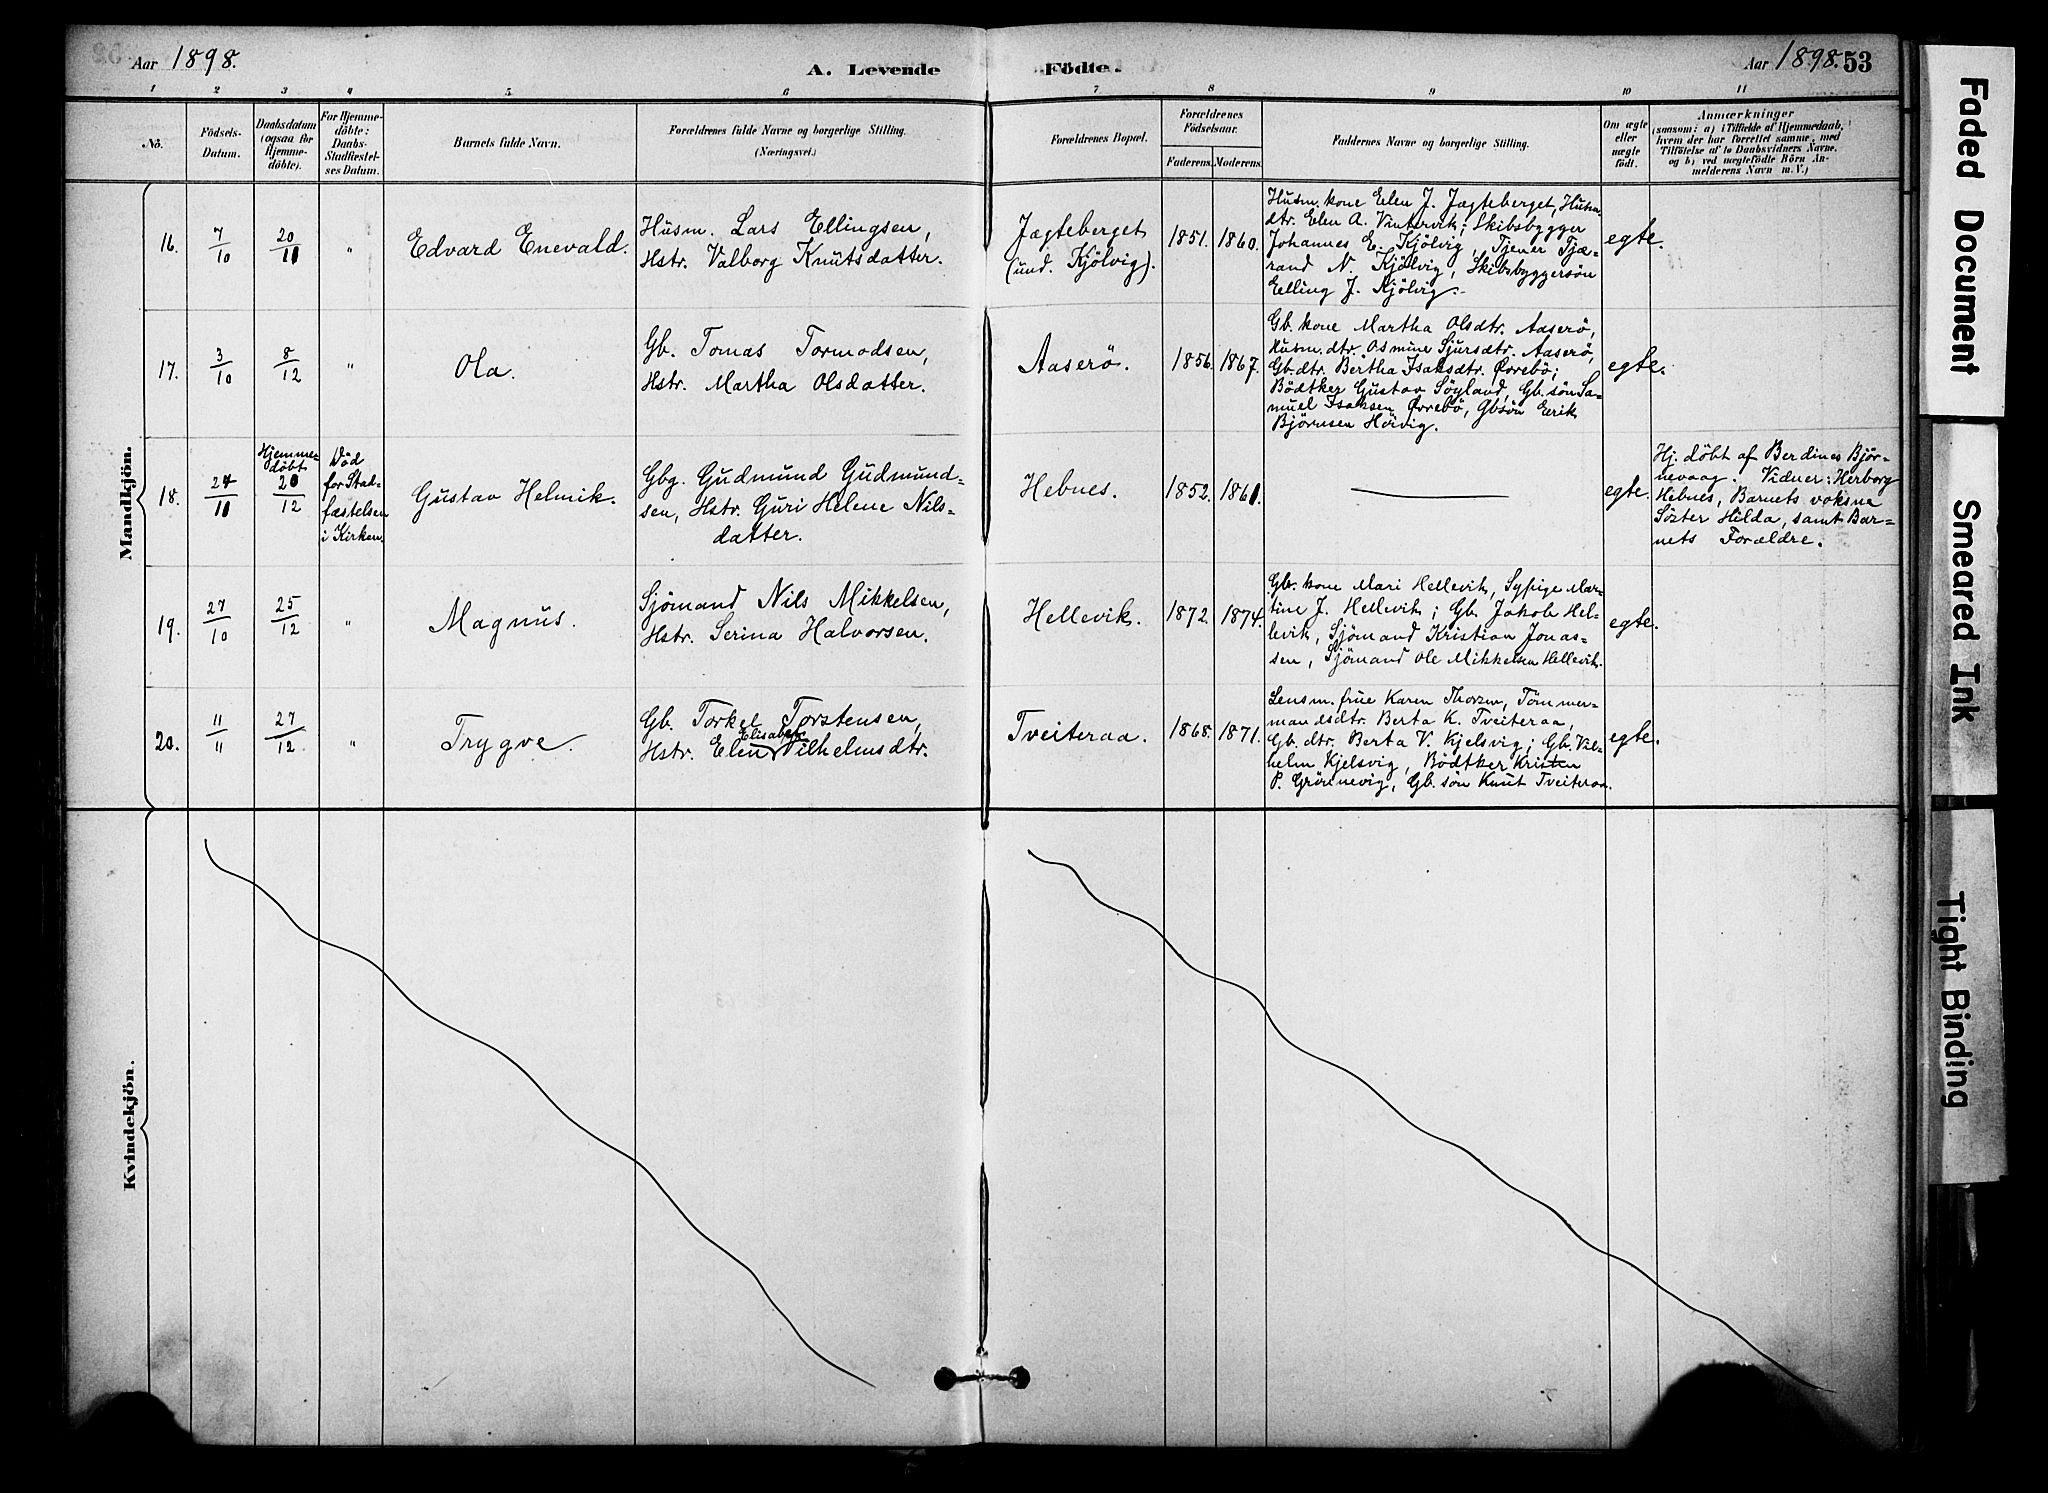 Aar 1898.
A. Levende Födte.
Aar 1898. 53
1 2 3 4 5 6 7 8 9 10 11
No.
Födsels-Datum.
Daabsdatum (ogsaa for Hjemme-döbte).
For Hjemme-döbte: Daabs-Stadfæstel-ses Datum.
Barnets fulde Navn.
Forældrenes fulde Navne og borgerlige Stilling.
(Næringsvei.)
Forældrenes Bopæl.
Forældrenes Födselsaar.
Faderens. Moderens.
Faddernes Navne og borgerlige Stilling.
Om ægte eller uægte födt.
Anmærkninger
(saasom: a) i Tilfælde af Hjemmedaab,
hvem der har forrettet samme, med
Tilföielse af to Daabsvidners Navne.
og b) ved uægtefödte Börn An-
melderens Navn m. V.)
Mandkjön.
16.
7/10
20/11
"
Edvard Enevald.
Husm. Lars Ellingsen,
Hstr. Valborg Knutsdatter.
Jægteberget
(und. Kjölvig).
1851. 1860.
Husm. kone Elen J. Jægteberget, Husm.
dtr. Elen A. Vintervik; Skibsbygger
Johannes E. Kjölvig, Tjener Tjæ-
rand N. Kjölvig, Skibsbyggersön
Elling J. Kjölvig.
egte.
17.
3/10
8/12
"
Ola.
Gb. Tomas Tormodsen,
Hstr. Martha Olsdatter.
Aaserö.
1856. 1867.
Gb. kone Martha Olsdtr. Aaserö,
Husm. dtr. Osmine Sjursdtr. Aaserö,
Gb. dtr. Bertha Isaksdtr. Øvrebö;
Bödtker Gustav Söyland, Gb. sön Sa-
muel Isaksen Øvrebö, Gbsön Eerik
Björnsen Hervig.
egte.
18.
24/11
Hjemme-
döbt
20/12
Död
for Stad-
fæstelsen
i Kirken.
Gustav Helmik.
Gbg. Gudmund Gudmund-
sen, Hstr. Guri Helene Nils-
datter.
Hebnes.
1852. 1861.
egte.
Hj. döbt af Berdines Björ-
nevaag. Vidner: Herborg
Hebnes, Barnets voksne
Söster Hilda, samt Bar-
nets Forældre.
19.
27/10
25/12
"
Magnus.
Sjömand Nils Mikkelsen,
Hstr. Serina Halvorsen.
Hellevik.
1872. 1874.
Gb. kone Mari Hellevik, Sypige Mar-
tine J. Hellevik; Gb. Jakob Hel-
levik, Sjömand Kristian Jonas-
sen, Sjömand Ole Mikkelsen Hellevik.
egte.
20.
11/11
27/12
"
Trygve.
Gb. Torkel Torstensen,
Elisabet
Hstr. Elen Vilhelmsdtr.
Tveiteraa.
1868. 1871.
Lensm. frue Karen Thorsen, Tömmer-
mandsdtr. Berta K. Tveiteraa,
Gb. dtr. Berta V. Kjelsvig; Gb. Vil-
helm Kjelsvig, Bödtker Kristen
P. Grönnevig, Gb. sön Knut Tveiteraa.
egte.
Kvindekjön.
Faded Document
Smeared Ink
Tight Binding